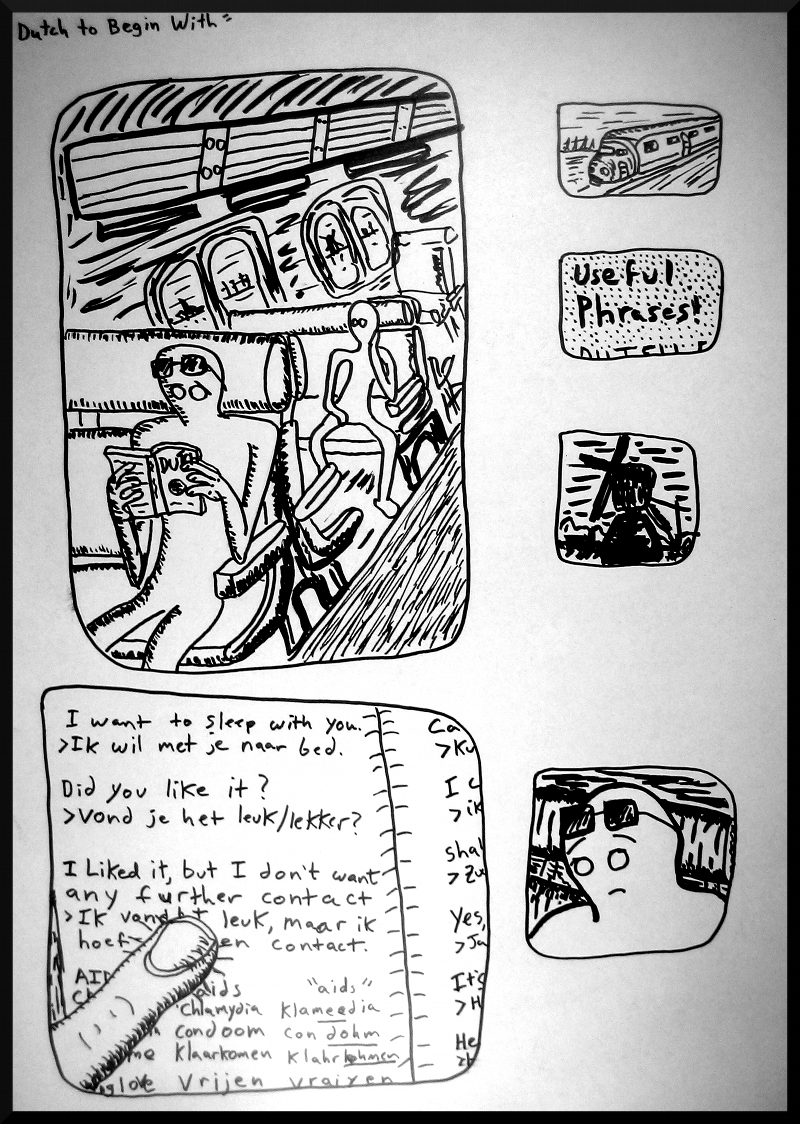 Dutch to Begin With=
DUT
Useful
Phrases!
I want to sleep with you.
>Ik wil met je naar bed.
Did you like it?
>Vond je het leuk/lekker?
I Liked it, but I don't want
any further contact
>Ik vand t leuk, maar ik
hoef en contact.
AID aids "aids"
Chlamydia Klameedia
condoom con dohm
Klaarkomen Klahrkohmen
glove Vrijen vraiyen
Ca
>Ku
I c
>ik
shal
>Zu
Yes,
>Ja
It's
>H
He